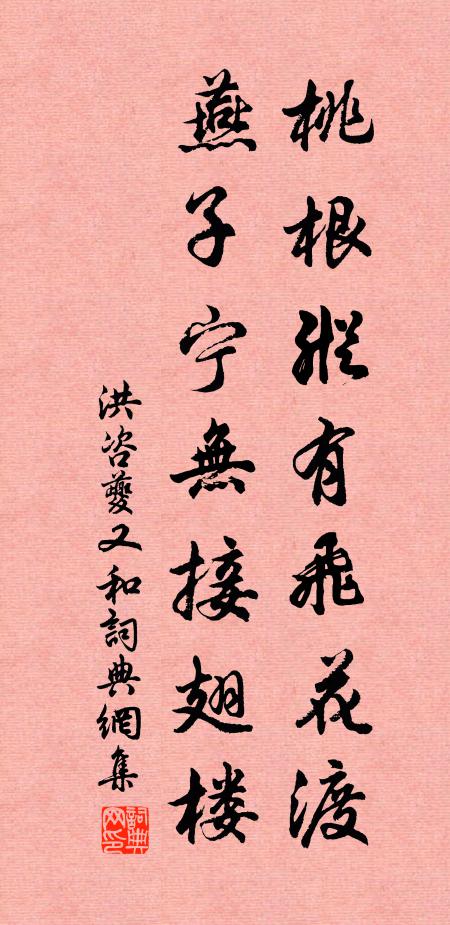 桃根縱有飛花渡
燕子宁無接翅楼
洪咨夔又和詞典網集
詞典网印